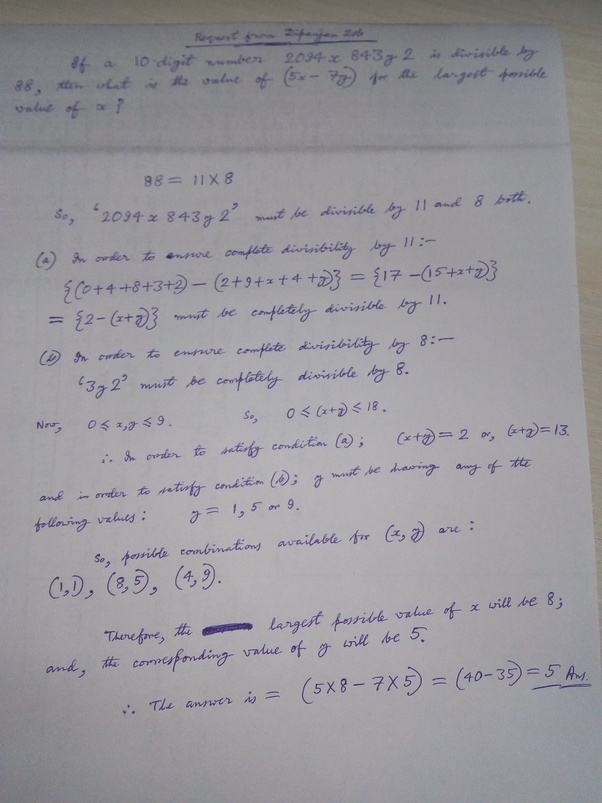 Request from Dipanjan Deb
If a 10-digit number 2094x843y2 is divisible by
88, then what is the value of (5x-7y) for the largest possible
value of x?
88 = 11X8
So, '2094x843y2' must be divisible by 11 and 8 both.
(a) In order to ensure complete divisibility by 11:-
{(0+4+8+3+2) - (2+9+x+4+y)} = {17-(15+x+y)}
= {2-(x+y)} must be completely divisible by 11.
(b) In order to ensure complete divisibility by 8:-
'3y2' must be completely divisible by 8.
Now, 0 ≤ x,y ≤ 9. So, 0 ≤ (x+y) ≤ 18.
∴ In order to satisfy condition (a); (x+y) = 2 or, (x+y) = 13.
and in order to satisfy condition (b); y must be having any of the
following values: y = 1, 5 or 9.
So, possible combinations available for (x, y) are:
(1,1), (8,5), (4,9).
Therefore, the largest possible value of x will be 8;
and, the corresponding value of y will be 5.
∴ The answer is = (5X8 - 7X5) = (40-35) = 5 Ans.